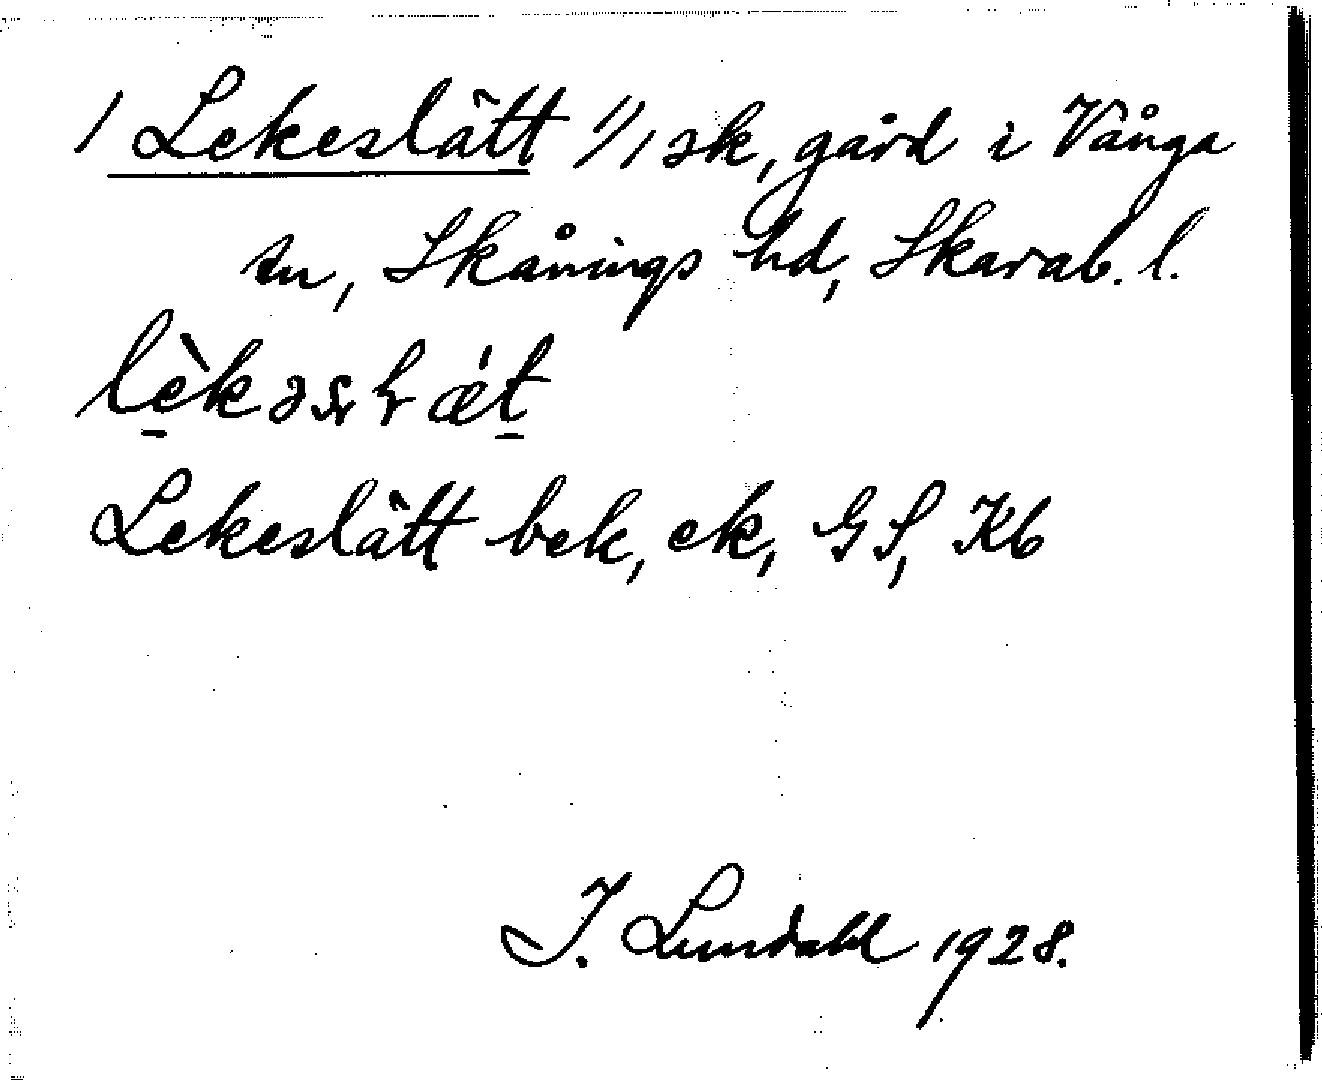 / Lekeslätt 1/1 sk, gård i Vånga
sn, Skånings hd, Skarab. l.
Lekeslätt bek, ek, GS, Kb
I. Lundahl 1928.